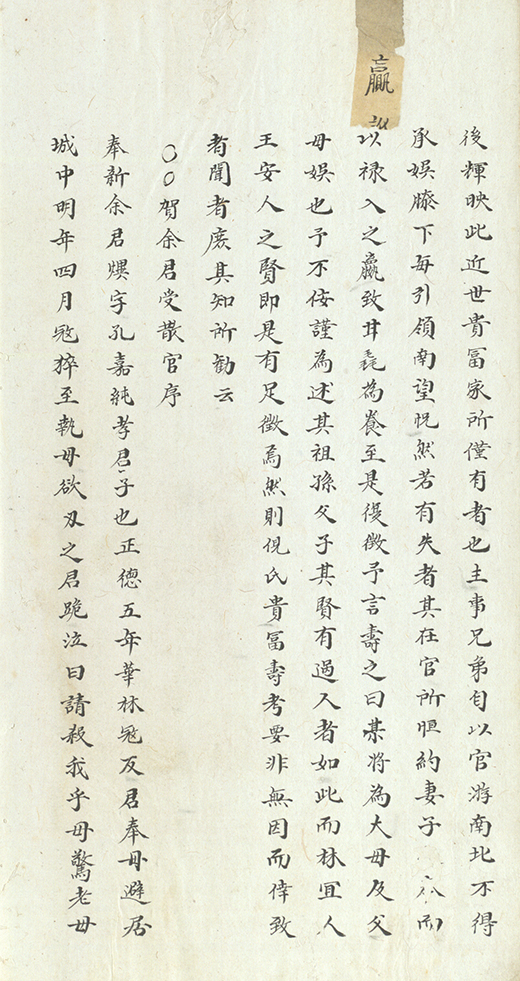 後輝映此近世貴冨家所僅有者也主事兄弟自以官游南北不得
承娱膝下每引領南望怳然若有失者其在官所恒約妻子而
以禄入之贏致甘毳為養至是復徴予言壽之曰某将為大母及父
母娱也予不侫謹為述其祖孫父子其賢有過人者如此而林宜人
王安人之賢即是有足徴焉然則倪氏貴冨壽考要非無因而倖致
者聞者庻其知所勸云
○○賀余君受散官序
奉新余君熼字孔嘉純孝君子也正德五年華林冦反君奉母避居
城中明年四月冦猝至執母欲刃之君跪泣曰請殺我乎毋驚老母
贏